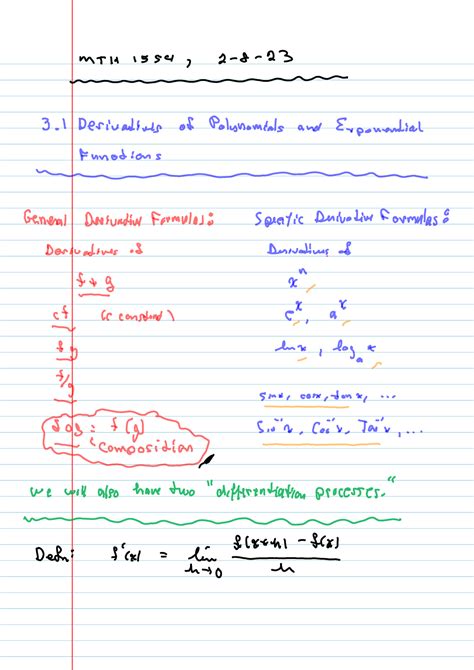 MTH 1554, 2-8-23
3.1 Derivatives of Polynomials and Exponential
Functions
General Derivative Formulas:
Derivatives of
f + g
cf (c constant)
fg
f/g
fog = f(g)
"Composition
Specific Derivative Formulas:
Derivatives of
xⁿ
eˣ, aˣ
ln x, logₐ x
sinx, cosx, tanx, ...
Sin⁻¹x, Cos⁻¹x, Tan⁻¹x, ...
We will also have two "differentiation processes."
Defn: f'(x) = lim h→0 f(x+h) - f(x) / h